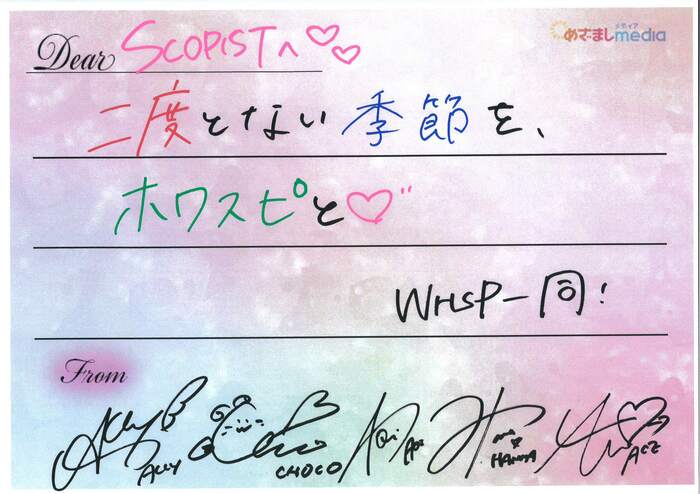 Dear SCOPISTへ♡♡
めざましmedia
メディア
二度とない季節を、
ホワスピと♡"
WHSP一同!
From
ALLY
CHOCO
API
HANNA
AEZ